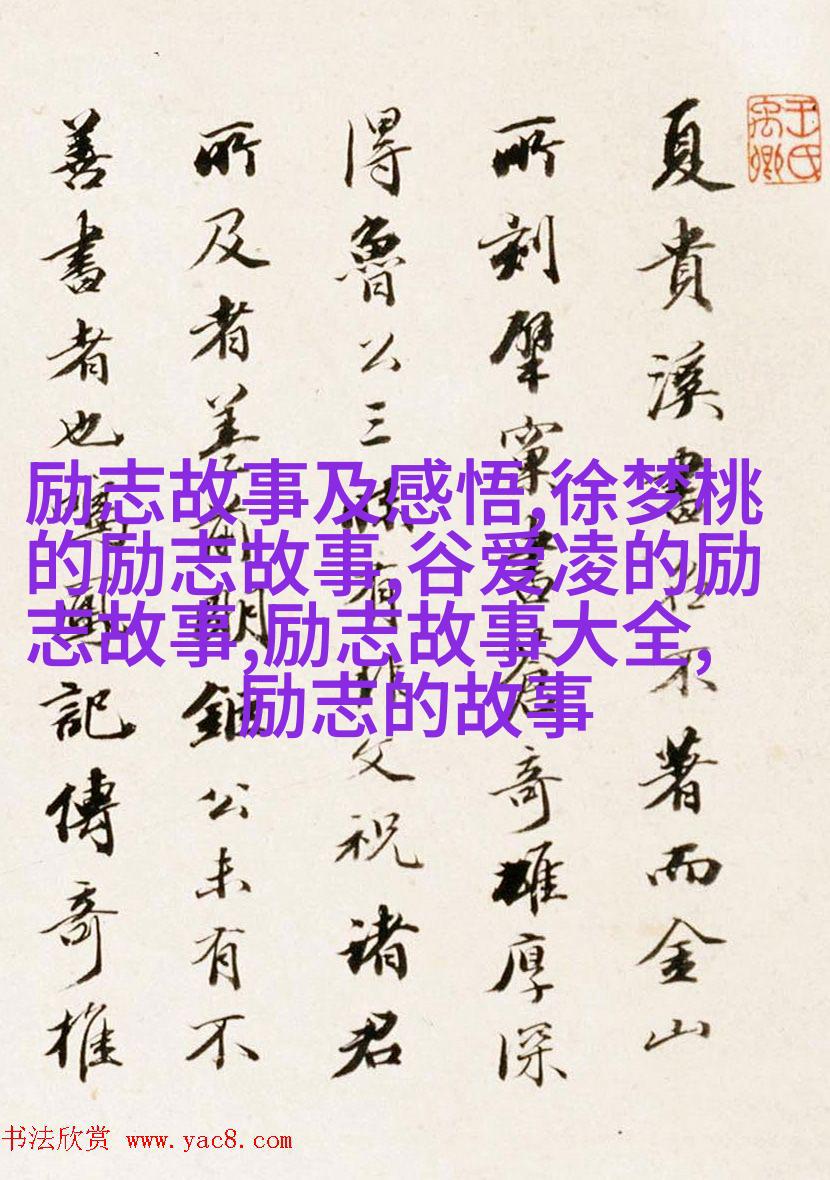 夏貴溪書名不著而金山
所刻擘窠書奇雄厚深
得魯公三有文祝諸君
所及者公未有不
善書者也記傳奇推
王氏禹卿
励志故事及感悟,徐梦桃
的励志故事,谷爱凌的励
志故事,励志故事大全,
励志的故事
书法欣赏 www.yac8.com